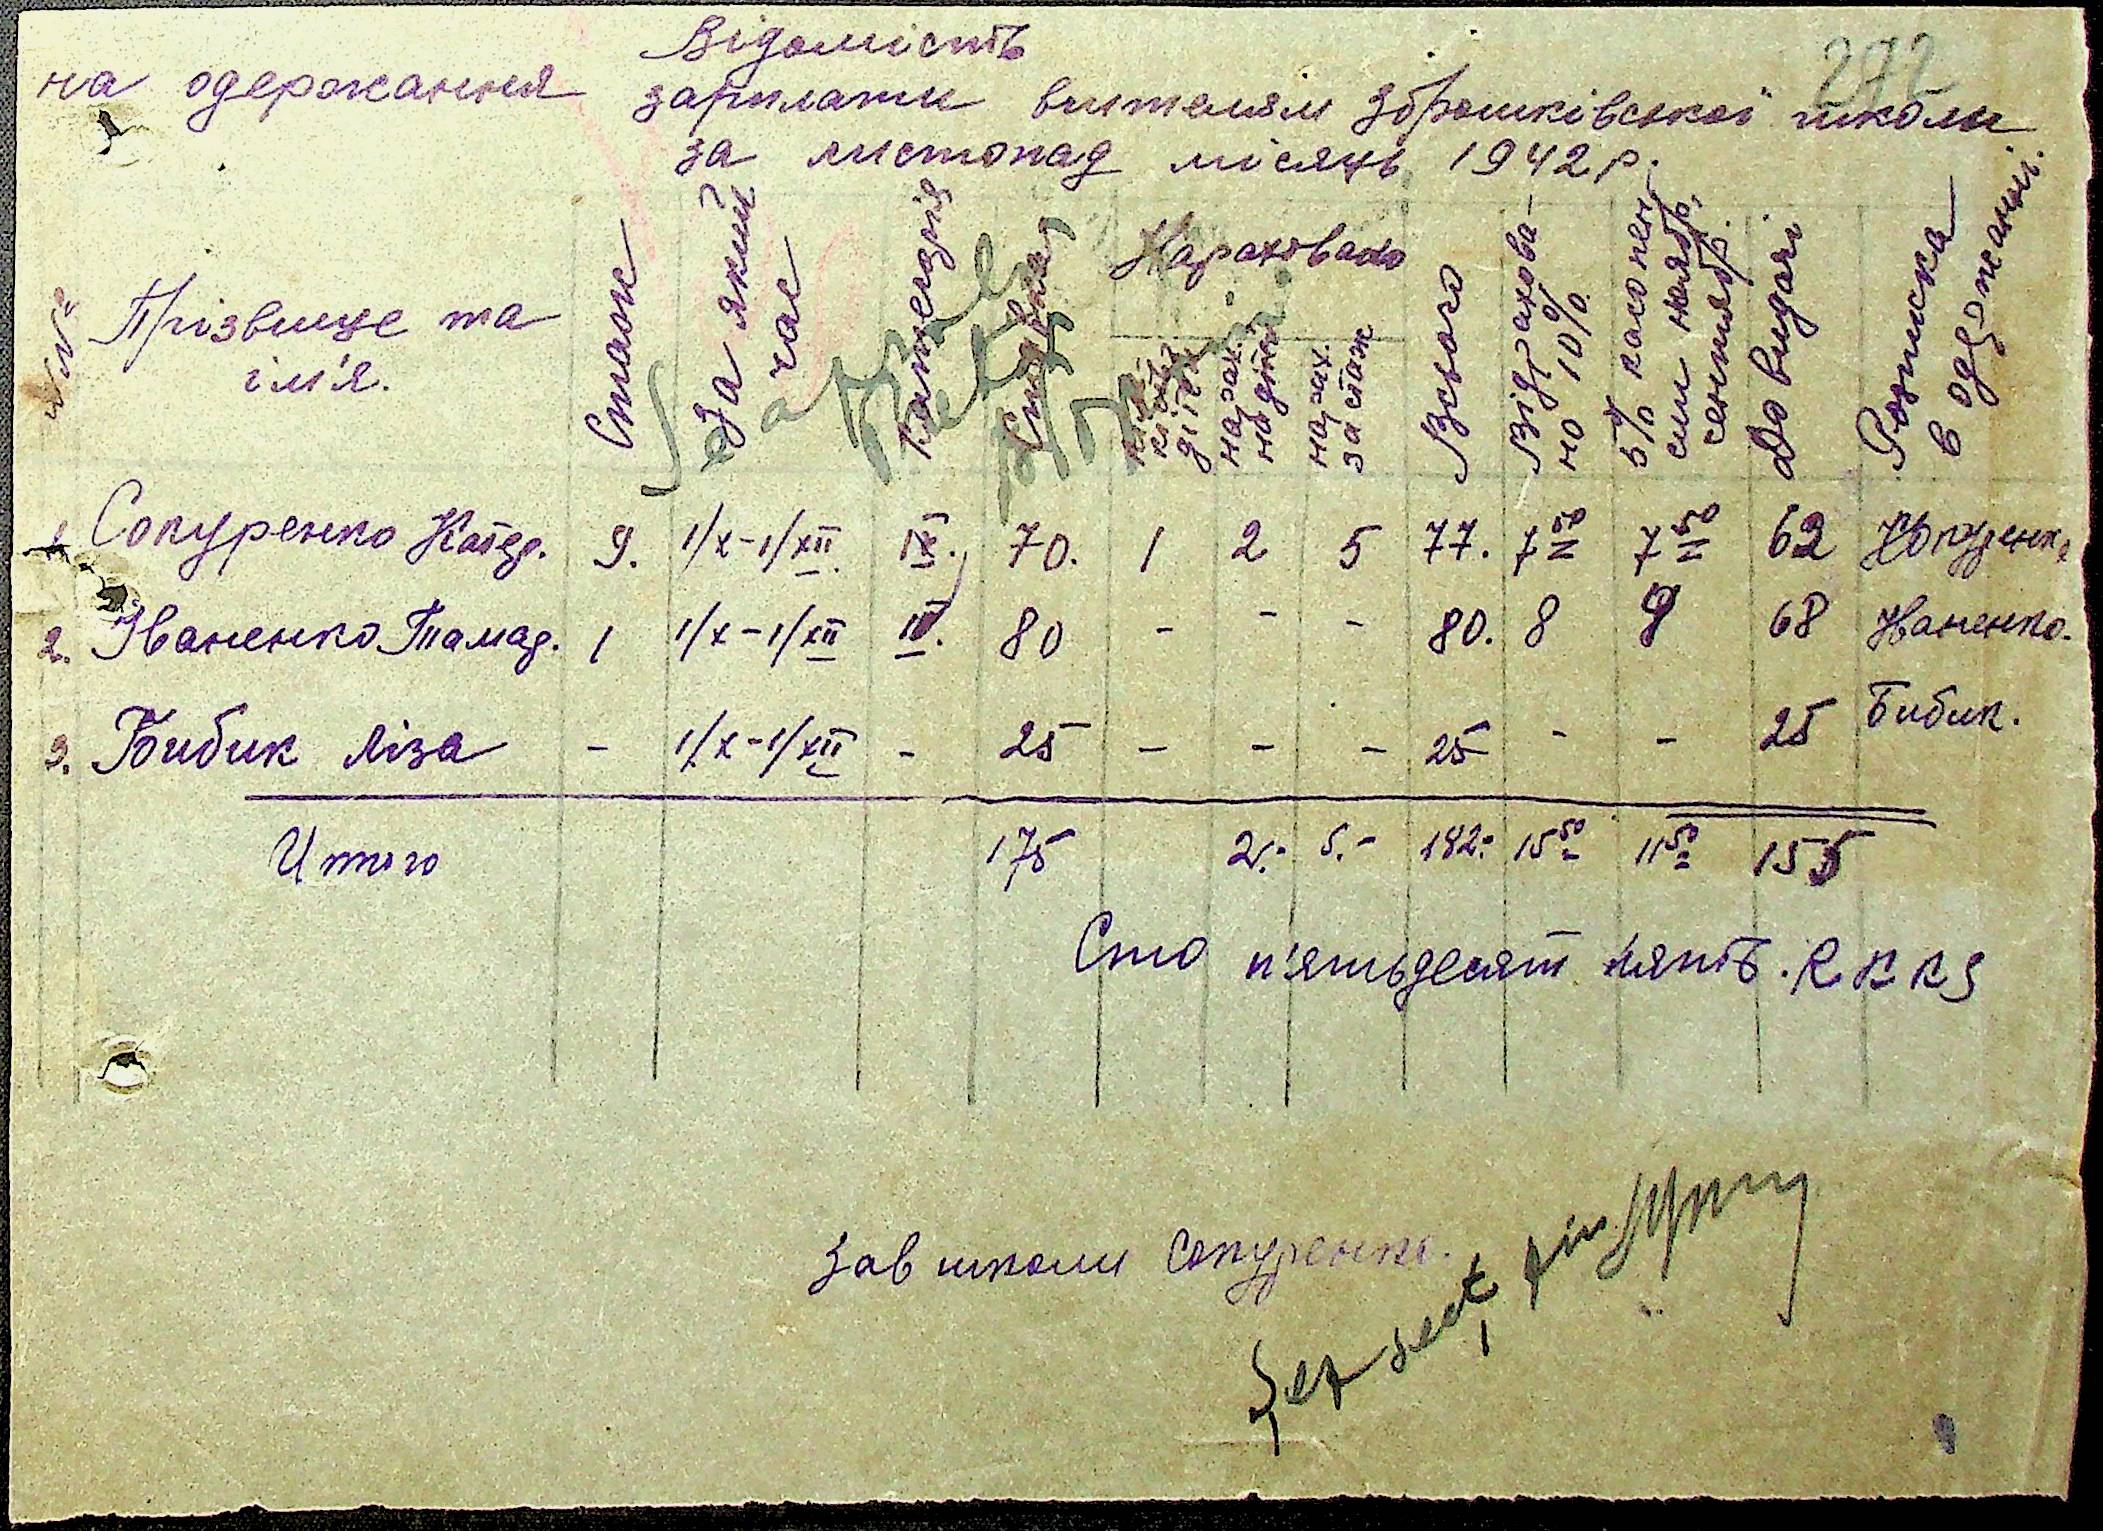 272
Відомість
на одержання зарплати вителям Зброшківської школи
за листопад місяць 1942 р.
№№
Прізвище та ім'я.
Стаж
За який час
Категорія
Нараховано
кільк. дітей
нарах. на дітей
нарах. за стаж
Всього
Відрахова-но 10%
До видачі
Розписка в одержанні.
1 Сопуренко Катер. 9. 1/X-1/XII IV. 70. 1 2 5 77. 7 50 7 50 62 Сопуренк.
2. Іваненко Тамар. 1 1/X-1/XII IV. 80 - - - 80. 8 68 Іваненко.
3. Бибик Ліза - 1/X-1/XII - 25 - - - 25 - - 25 Бибик.
Итого 175 2.- 5.- 182.- 15 50 11 50 155
Сто п'ятьдесят пять. R K K S
Зав школи Сопуренко.